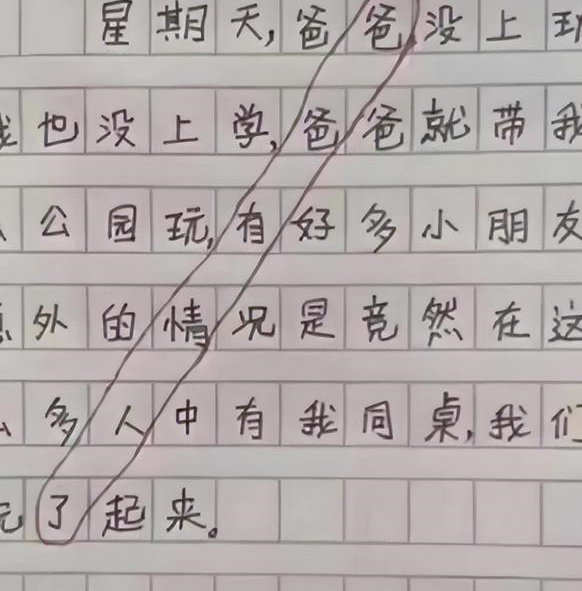 星期天,爸爸没上班
我也没上学,爸爸就带我
公园玩,有好多小朋友
意外的情况是竟然在这
么多人中有我同桌,我们
玩了起来。